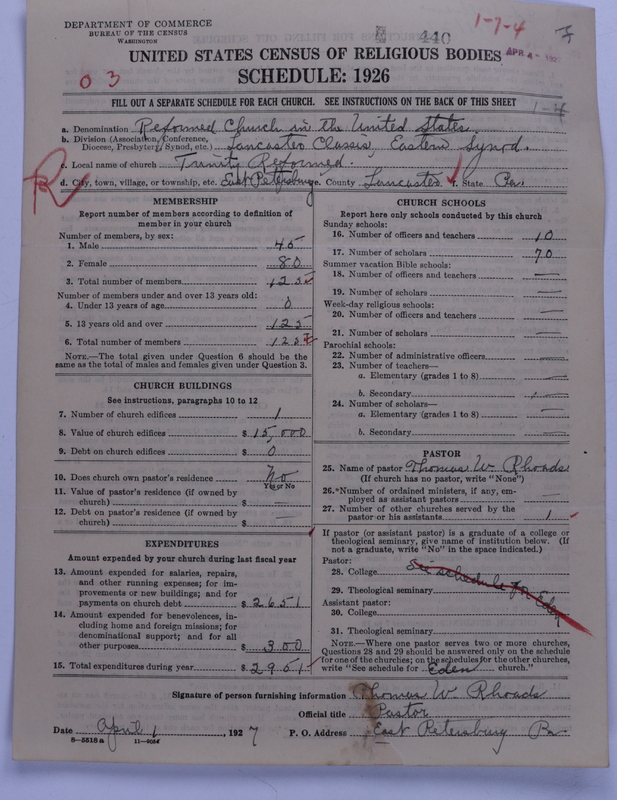 DEPARTMENT OF COMMERCE
BUREAU OF THE CENSUS
WASHINGTON
440
1-7-4
APR 4- 192
UNITED STATES CENSUS OF RELIGIOUS BODIES
0 3
SCHEDULE: 1926
FILL OUT A SEPARATE SCHEDULE FOR EACH CHURCH. SEE INSTRUCTIONS ON THE BACK OF THIS SHEET
1-4
a. Denomination Reformed Church in the United States.
b. Division (Association, Conference,
Diocese, Presbytery, Synod, etc.) Lancaster Classis, Eastern Synod.
c. Local name of church Trinity Reformed.
R
d. City, town, village, or township, etc. East Petersburg e. County Lancaster f. State Pa.
MEMBERSHIP
Report number of members according to definition of
member in your church
Number of members, by sex:
1. Male 45
2. Female 80
3. Total number of members 125
Number of members under and over 13 years old:
4. Under 13 years of age 0
5. 13 years old and over 125
6. Total number of members 125
NOTE.—The total given under Question 6 should be the
same as the total of males and females given under Question 3.
CHURCH BUILDINGS
See instructions, paragraphs 10 to 12
7. Number of church edifices 1
8. Value of church edifices $ 15,000
9. Debt on church edifices $ 0
10. Does church own pastor's residence No
Yes or No
11. Value of pastor's residence (if owned by
church) $ —
12. Debt on pastor's residence (if owned by
church) $ —
EXPENDITURES
Amount expended by your church during last fiscal year
13. Amount expended for salaries, repairs,
and other running expenses; for im-
provements or new buildings; and for
payments on church debt $ 2651
14. Amount expended for benevolences, in-
cluding home and foreign missions; for
denominational support; and for all
other purposes $ 300
15. Total expenditures during year $ 2951
CHURCH SCHOOLS
Report here only schools conducted by this church
Sunday schools:
16. Number of officers and teachers 10
17. Number of scholars 70
Summer vacation Bible schools:
18. Number of officers and teachers —
19. Number of scholars —
Week-day religious schools:
20. Number of officers and teachers —
21. Number of scholars —
Parochial schools:
22. Number of administrative officers —
23. Number of teachers—
a. Elementary (grades 1 to 8) —
b. Secondary —
24. Number of scholars—
a. Elementary (grades 1 to 8) —
b. Secondary —
PASTOR
25. Name of pastor Thomas W. Rhoads
(If church has no pastor, write "None")
26. Number of ordained ministers, if any, em-
ployed as assistant pastors —
27. Number of other churches served by the
pastor or his assistants 1
If pastor (or assistant pastor) is a graduate of a college or
theological seminary, give name of institution below. (If
not a graduate, write "No" in the space indicated.)
Pastor:
28. College See schedule for Eden
29. Theological seminary
Assistant pastor:
30. College
31. Theological seminary
NOTE.—Where one pastor serves two or more churches,
Questions 28 and 29 should be answered only on the schedule
for one of the churches; on the schedules for the other churches,
write "See schedule for Eden church."
Signature of person furnishing information Thomas W. Rhoads
Official title Pastor
Date April 1, 1927 P. O. Address East Petersburg Pa.
8—5518 a 11—9055